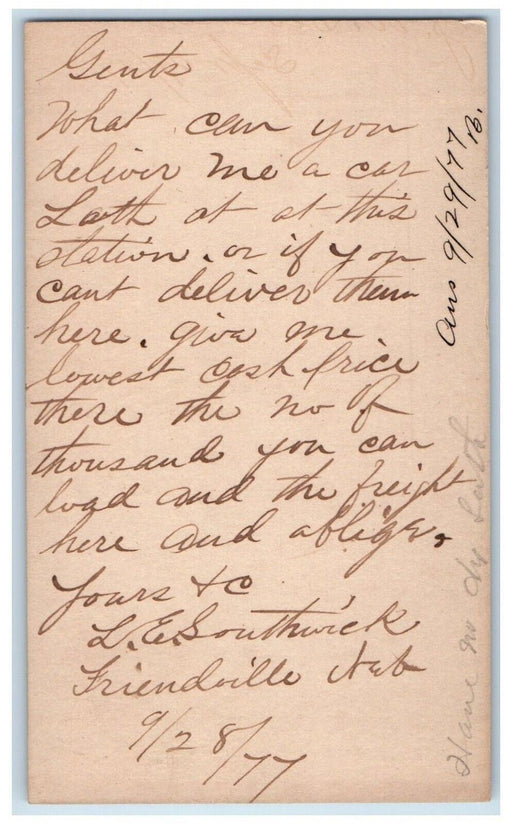 Gents
What can you
deliver me a car
Lath at at this
station. or if you
cant deliver them
here. give me
lowest cash price
there the no of
thousand you can
load and the freight
here and oblige,
Yours &c
L. E. Southwick
Friendville Neb
9/28/77
Ans 9/29/77
B.
Have no dry Lath